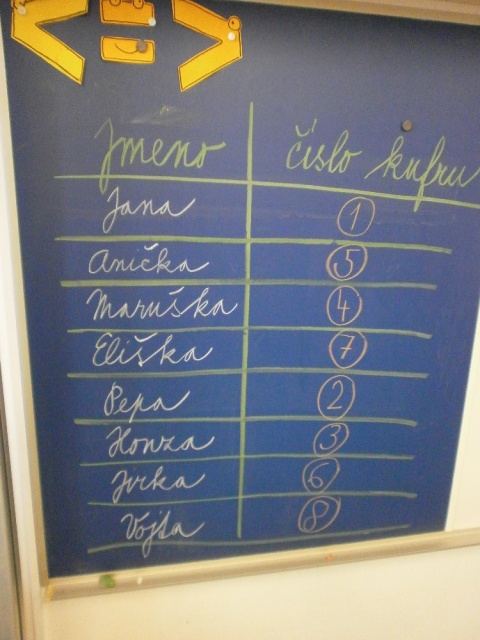 < = >
Jméno číslo kufru
Jana 1
Anička 5
Maruška 4
Eliška 7
Pepa 2
Honza 3
Jirka 6
Vojta 8